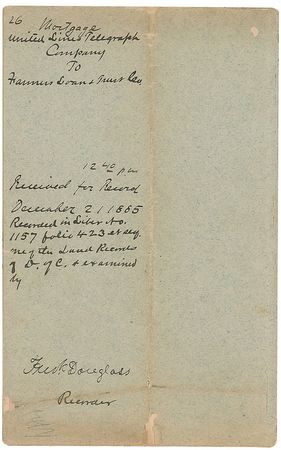 26
Mortgage
United Lines Telegraph
Company
To
Farmers Loan & Trust Co
12 40 p.m
Received for Record
December 21 1885
Recorded in Liber No.
1157 folio 423 et seq.
Land Records
of D. of C. & examined
by
Fredk Douglass
Recorder